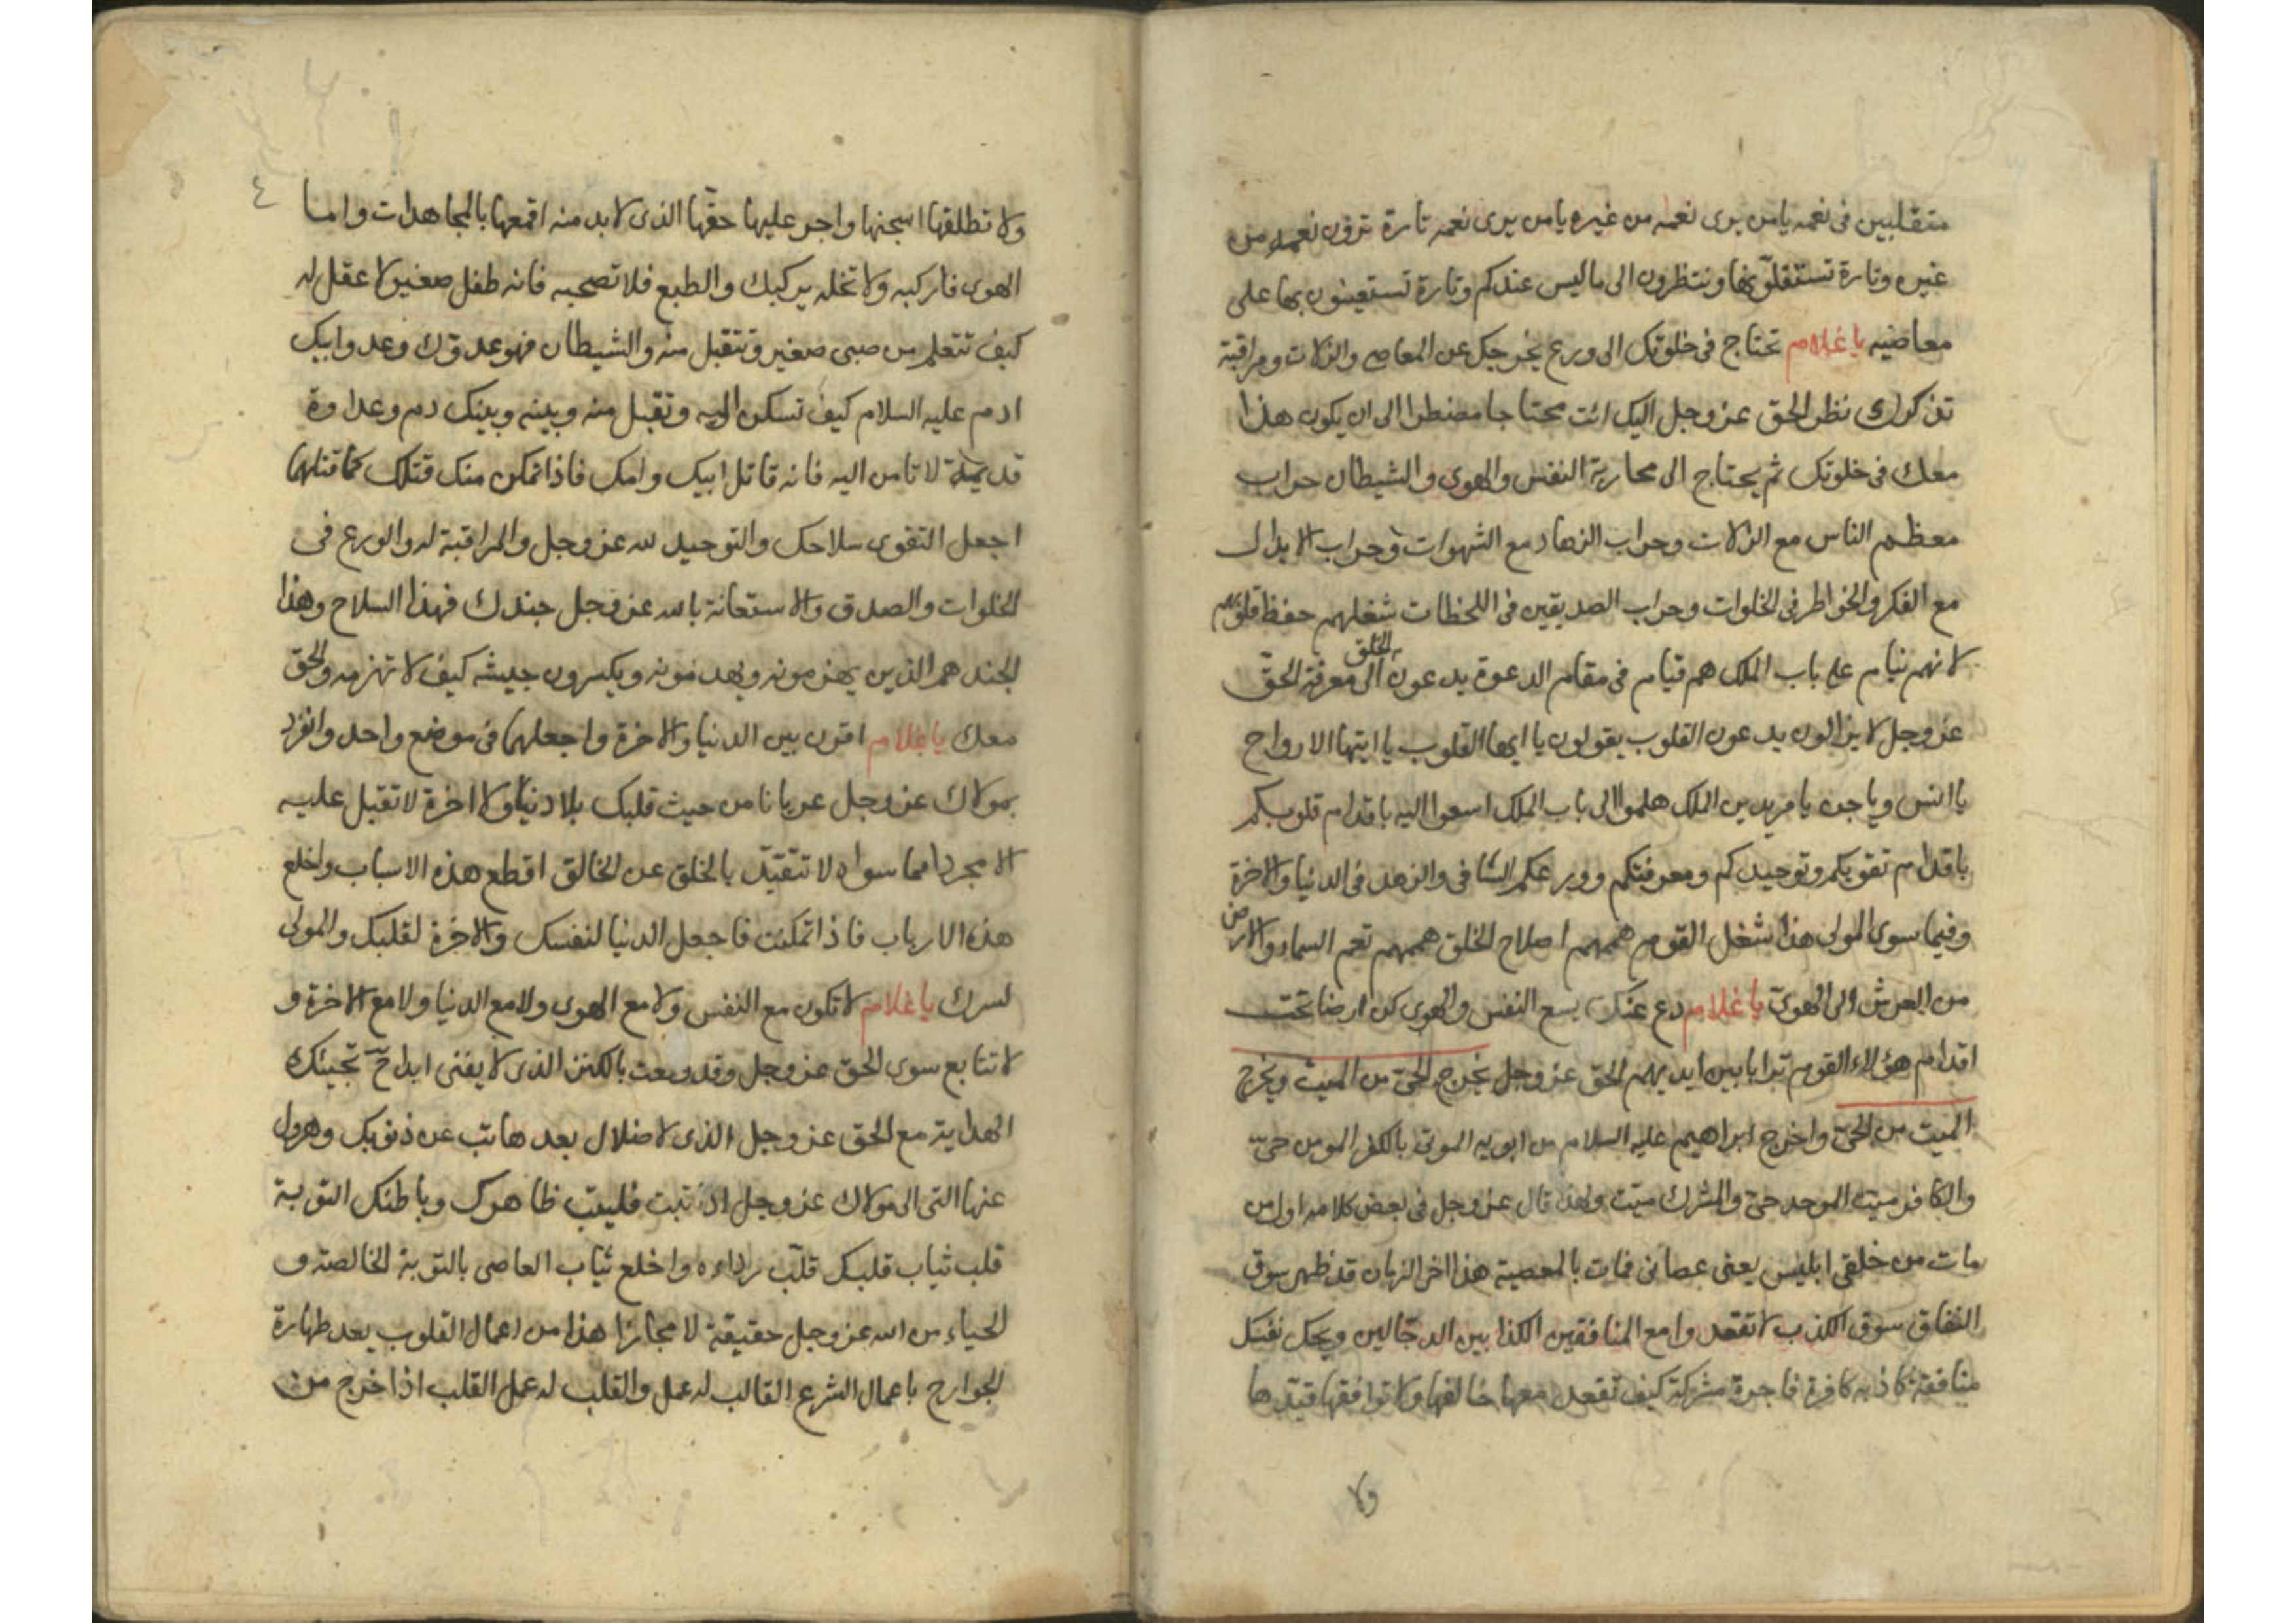 متقلبين فى نعمه يامن يرى نعمه من غيره يامن يرى نعمه تارة ترون نعمه من
غيره وتارة تستقلّونها وتنتظرون الى ماليس عندكم وتارة تستعينون بها على
معاضيه يا غلام تحتاج فى خلوتك الى ورع يخرجك عن المعاصى والزلات ومراقبة
تذكرك نظر الحق عز وجل اليك انت محتاجا مضطرا الى ان يكون هذا
معك فى خلوتك ثم يحتاج الى محاربة النفس والهوى والشيطان حراب
معظم الناس مع الزلات وحراب الزهاد مع الشهوات وحراب الابدال
مع الفكر والخواطر فى الخلوات وحراب الصديقين فى اللحظات شغلهم حفظ قلوبهم
لانهم نيام على باب الملك هم قيام فى مقام الدعوة يدعون الخلق الى معرفة الحق
عز وجل لا يزالون يدعون القلوب يقولون يا ايها القلوب يا ايتها الارواح
يا انس ويا جن يا مريدين الملك هلموا الى باب الملك اسعوا اليه باقدام قلوبكم
باقدام تقويكم وتوحيدكم ومعرفتكم وورعكم الشافى والزهد فى الدنيا والاخرة
وفيما سوى المولى هذا شغل القوم هممهم اصلاح الخلق هممهم تعم السماء والارض
من العرش الى الهوى يا غلام دع عنك بسع النفس والهوى كن ارضا تحت
اقدام هؤلاء القوم ترابا بين ايديهم الحق عز وجل يخرج الحى من الميت ويخرج
الميت من الحى واخرج ابراهيم عليه السلام من ابويه الموتى بالكفر المومن حىّ
والكافر ميت الموحد حى والمشرك ميّت ولهذا قال عز وجل فى بعض كلامه اول من
مات من خلقى ابليس يعنى عصانى فمات بالمعصية هذا اخر الزمان قد ظهر سوق
النفاق سوق الكذب لا تقعدوا مع المنافقين الكذابين الدجّالين ويحك نفسك
منافقة كاذبه كافرة فاجرة مشركة كيف تقعد معها خالفها ولا توافقها قيّدها
ولا
٤
ولا تطلقها اسجنها واجر عليها حقّها الذى لابد منه اقمعها بالمجاهدات واما
الهوى فاركبه ولا تخله يركبك والطبع فلا تصحبه فانه طفل صغير لا عقل له
كيف تتعلم من صبى صغير وتتقبل منه والشيطان فهو عدوّك وعدو ابيك
ادم عليه السلام كيف تسكن اليه وتقبل منه وبينه وبينك دم وعداوة
قديمة لا تامن اليه فانه قاتل ابيك وامك فاذا تمكن منك قتلك كما قتلهما
اجعل التقوى سلاحك والتوحيد لله عز وجل والمراقبة له والورع فى
الخلوات والصدق والاستعانة بالله عز وجل جندك فهذا السلاح وهذا
الجند هم الذين يهزمونه ويهدمونه ويكسرون جيشه كيف لا تهزمه والحق
معك يا غلام اقرن بين الدنيا والاخرة واجعلهما فى موضع واحد وانفرد
بمولاك عز وجل عريانا من حيث قلبك بلا دنيا ولا اخرة لا تقبل عليه
الا مجردا مما سواه لا تتقيّد بالخلق عن الخالق اقطع هذه الاسباب واخلع
هذه الارباب فاذا تمكنت فاجعل الدنيا لنفسك والاخرة لقلبك والمولى
لسرك يا غلام لا تكون مع النفس ولا مع الهوى ولا مع الدنيا ولا مع الاخرة و
لا تتابع سوى الحق عز وجل وقد وقعت بالكنز الذى لا يفنى ابدا ح تجيئك
الهداية مع الحق عز وجل الذى لا ضلال بعدها تب عن ذنوبك وهرول
عنها التى الى مولاك عز وجل اذا تبت فليتب ظاهرك وباطنك التوبة
قلب ثياب قلبك قلّب رداءه واخلع ثياب العاصى بالتوبة الخالصة و
الحياء من الله عز وجل حقيقة لا مجازا هذا من اعمال القلوب بعد طهارة
الجوارح باعمال الشرع القالب له عمل والقلب له عمل القلب اذا خرج من